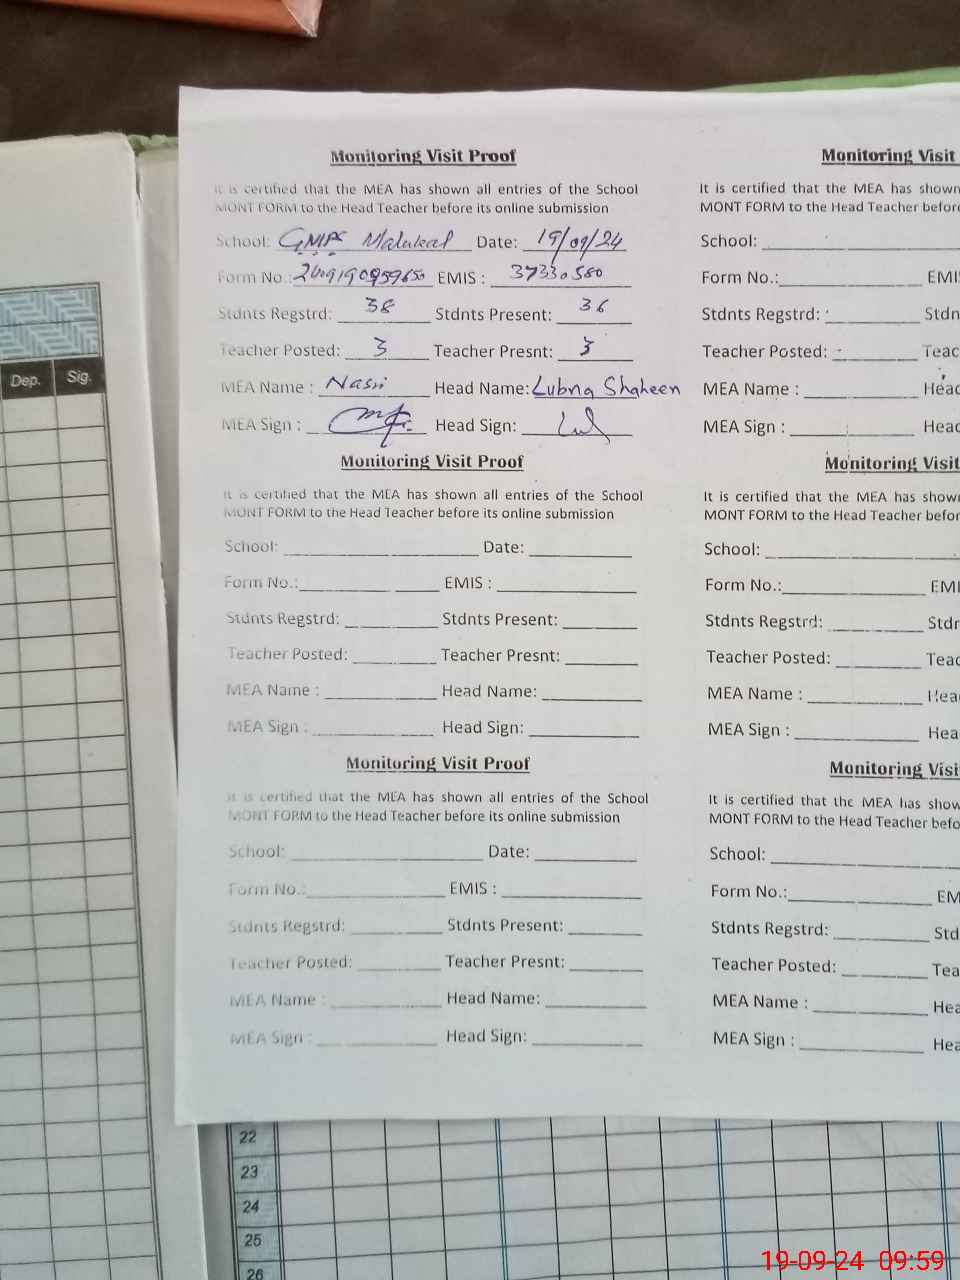 Dep. Sig.
Monitoring Visit Proof
It is certified that the MEA has shown all entries of the School
MONT FORM to the Head Teacher before its online submission
School: GMPS Date: 19/09/24
Form No.: EMIS : 37330580
Stdnts Regstrd: 38 Stdnts Present: 36
Teacher Posted: 3 Teacher Presnt: 3
MEA Name : Head Name: Lubna Shaheen
MEA Sign : Head Sign:
Monitoring Visit Proof
It is certified that the MEA has shown all entries of the School
MONT FORM to the Head Teacher before its online submission
School: Date:
Form No.: EMIS :
Stdnts Regstrd: Stdnts Present:
Teacher Posted: Teacher Presnt:
MEA Name : Head Name:
MEA Sign : Head Sign:
Monitoring Visit Proof
It is certified that the MEA has shown all entries of the School
MONT FORM to the Head Teacher before its online submission
School: Date:
Form No.: EMIS :
Stdnts Regstrd: Stdnts Present:
Teacher Posted: Teacher Presnt:
MEA Name : Head Name:
MEA Sign : Head Sign:
Monitoring Visit
It is certified that the MEA has shown
MONT FORM to the Head Teacher before
School:
Form No.: EMI
Stdnts Regstrd: Stdn
Teacher Posted: Teac
MEA Name : Head
MEA Sign : Head
Monitoring Visit
It is certified that the MEA has shown
MONT FORM to the Head Teacher befor
School:
Form No.: EMI
Stdnts Regstrd: Stdr
Teacher Posted: Teac
MEA Name : Hea
MEA Sign : Hea
Monitoring Visi
It is certified that the MEA has show
MONT FORM to the Head Teacher befo
School:
Form No.: EM
Stdnts Regstrd: Std
Teacher Posted: Tea
MEA Name : Hea
MEA Sign : Hea
22
23
24
25
26
19-09-24 09:59